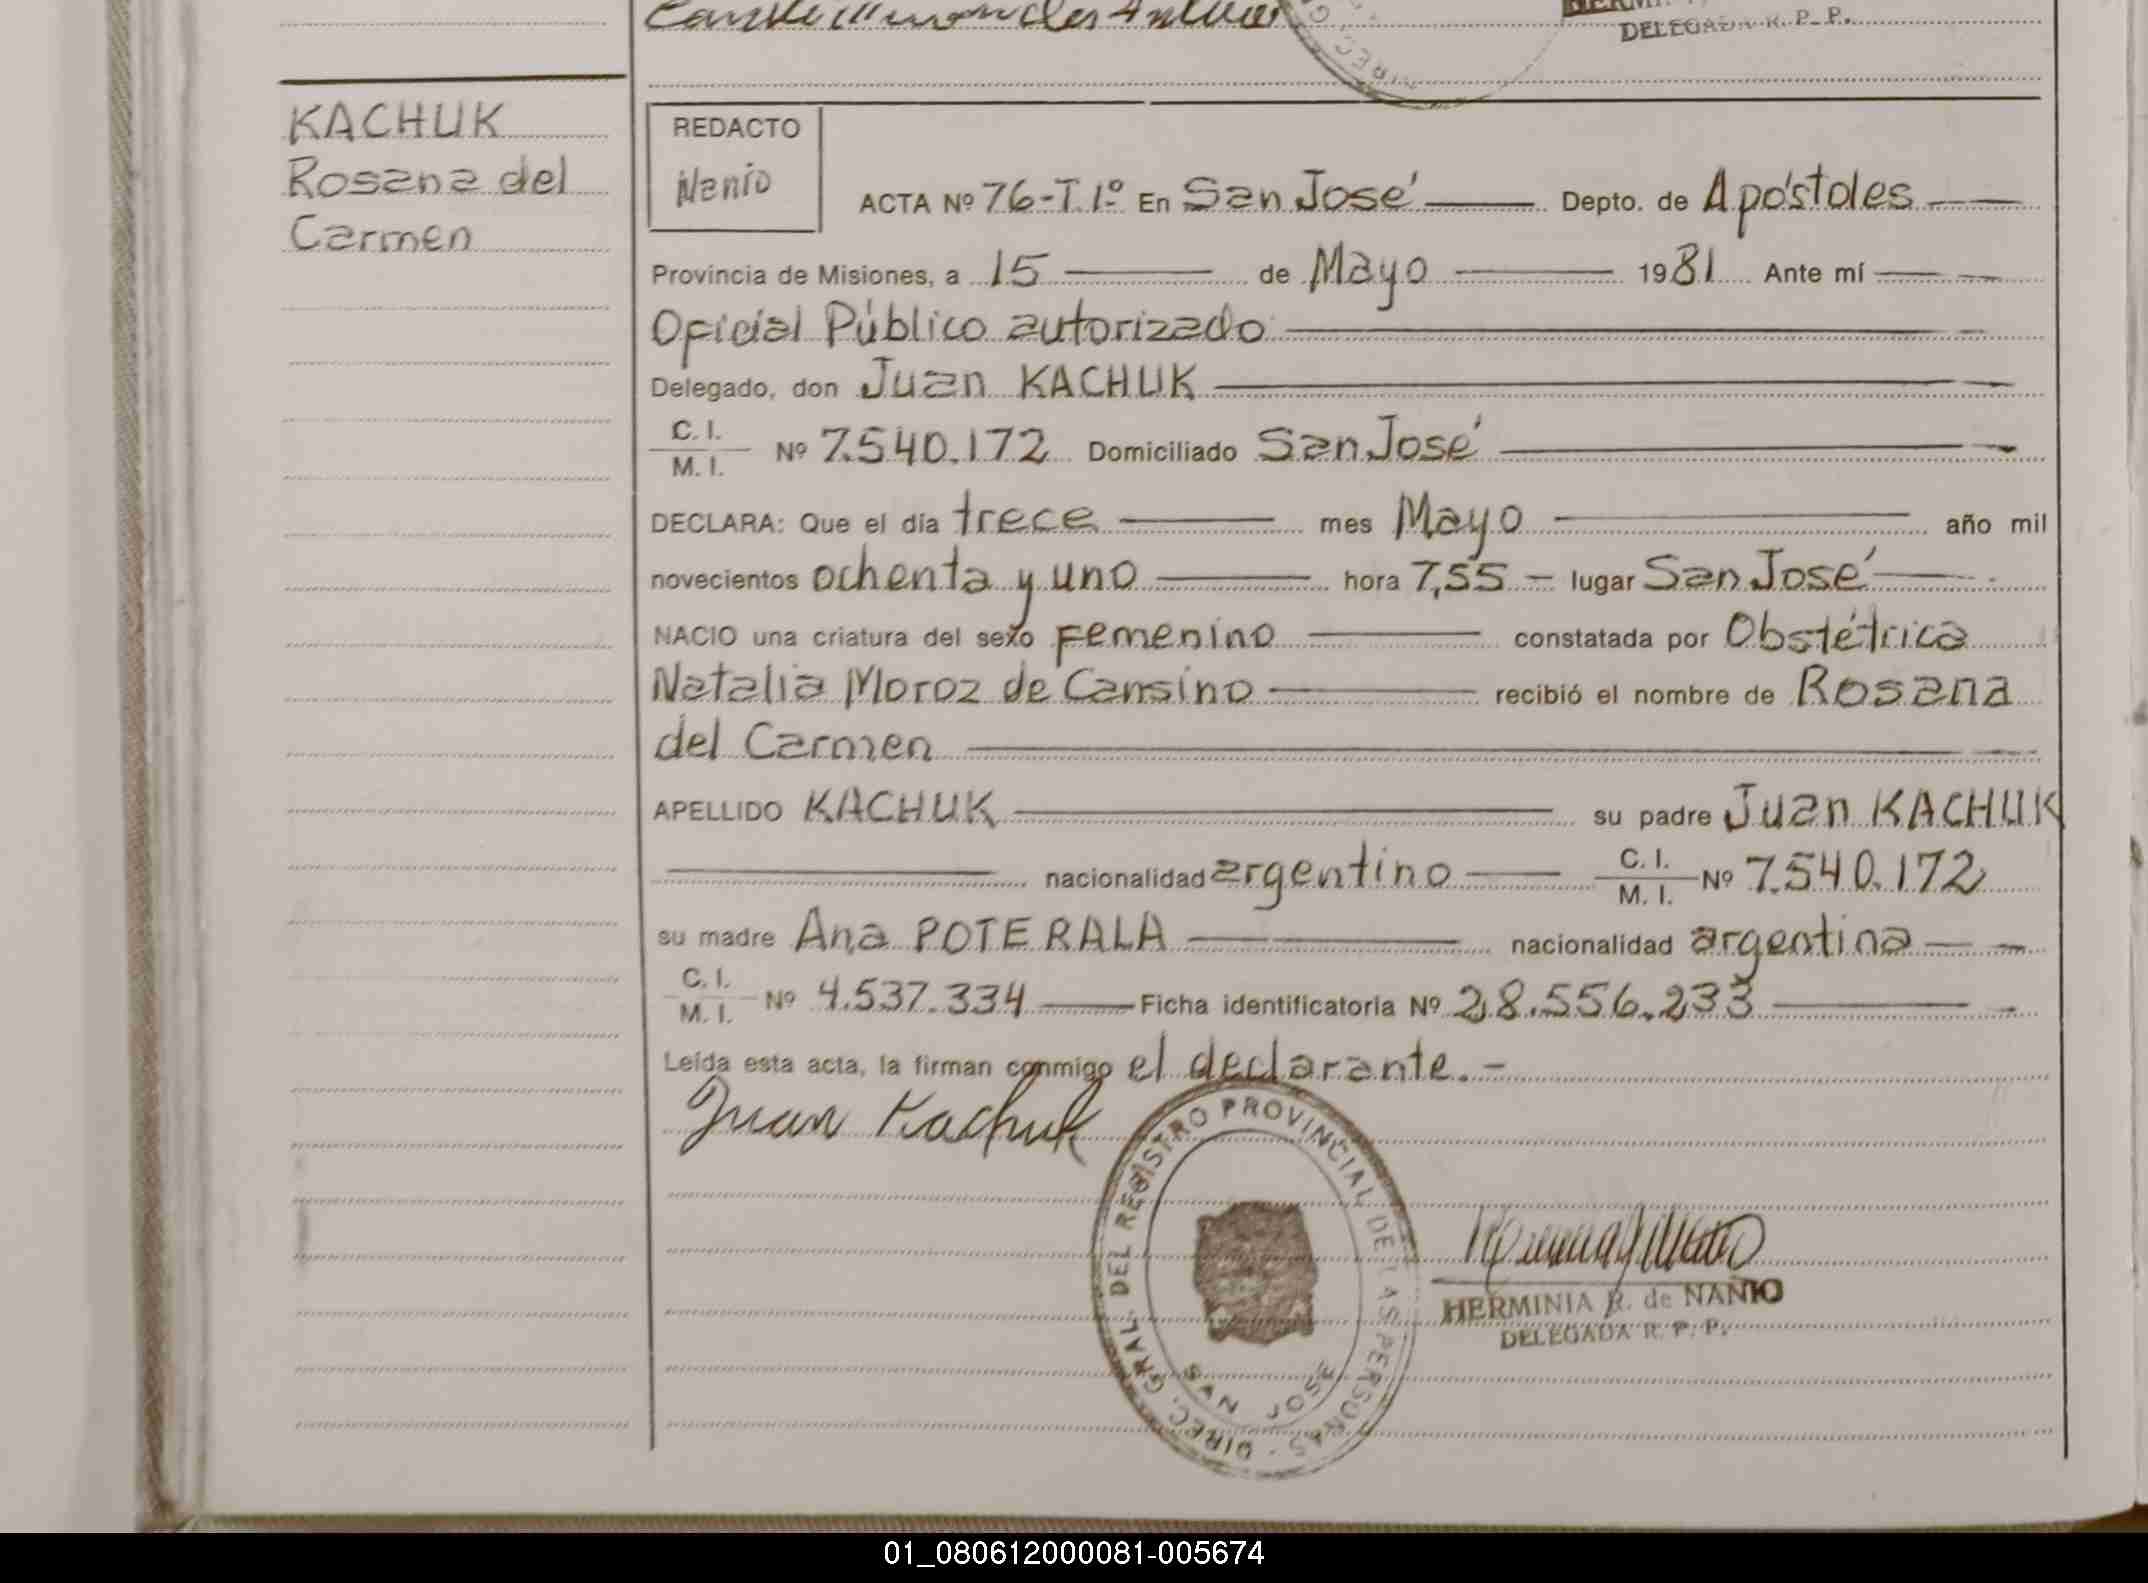 DELEGADA R. P. P.
KACHUK
Rosana del
Carmen
REDACTO
Nanio
ACTA Nº 76-T.1º En San José Depto. de Apóstoles
Provincia de Misiones, a 15 de Mayo 1981 Ante mí
Oficial Público autorizado
Delegado, don Juan KACHUK
C. I.
M. I. Nº 7.540.172 Domiciliado San José
DECLARA: Que el día trece mes Mayo año mil
novecientos ochenta y uno hora 7,55 - lugar San José
NACIO una criatura del sexo femenino constatada por Obstétrica
Natalia Moroz de Cansino recibió el nombre de Rosana
del Carmen
APELLIDO KACHUK su padre Juan KACHUK
nacionalidad argentino C. I.
M. I. Nº 7.540.172
su madre Ana POTERALA nacionalidad argentina
C. I.
M. I. Nº 4.537.334 Ficha identificatoria Nº 28.556.233
Leída esta acta, la firman conmigo el declarante.-
Juan Kachuk
DIREC. GRAL. DEL REGISTRO PROVINCIAL DE LAS PERSONAS
SAN JOSE
HERMINIA R. de NANIO
DELEGADA R. P. P.
01_080612000081-005674